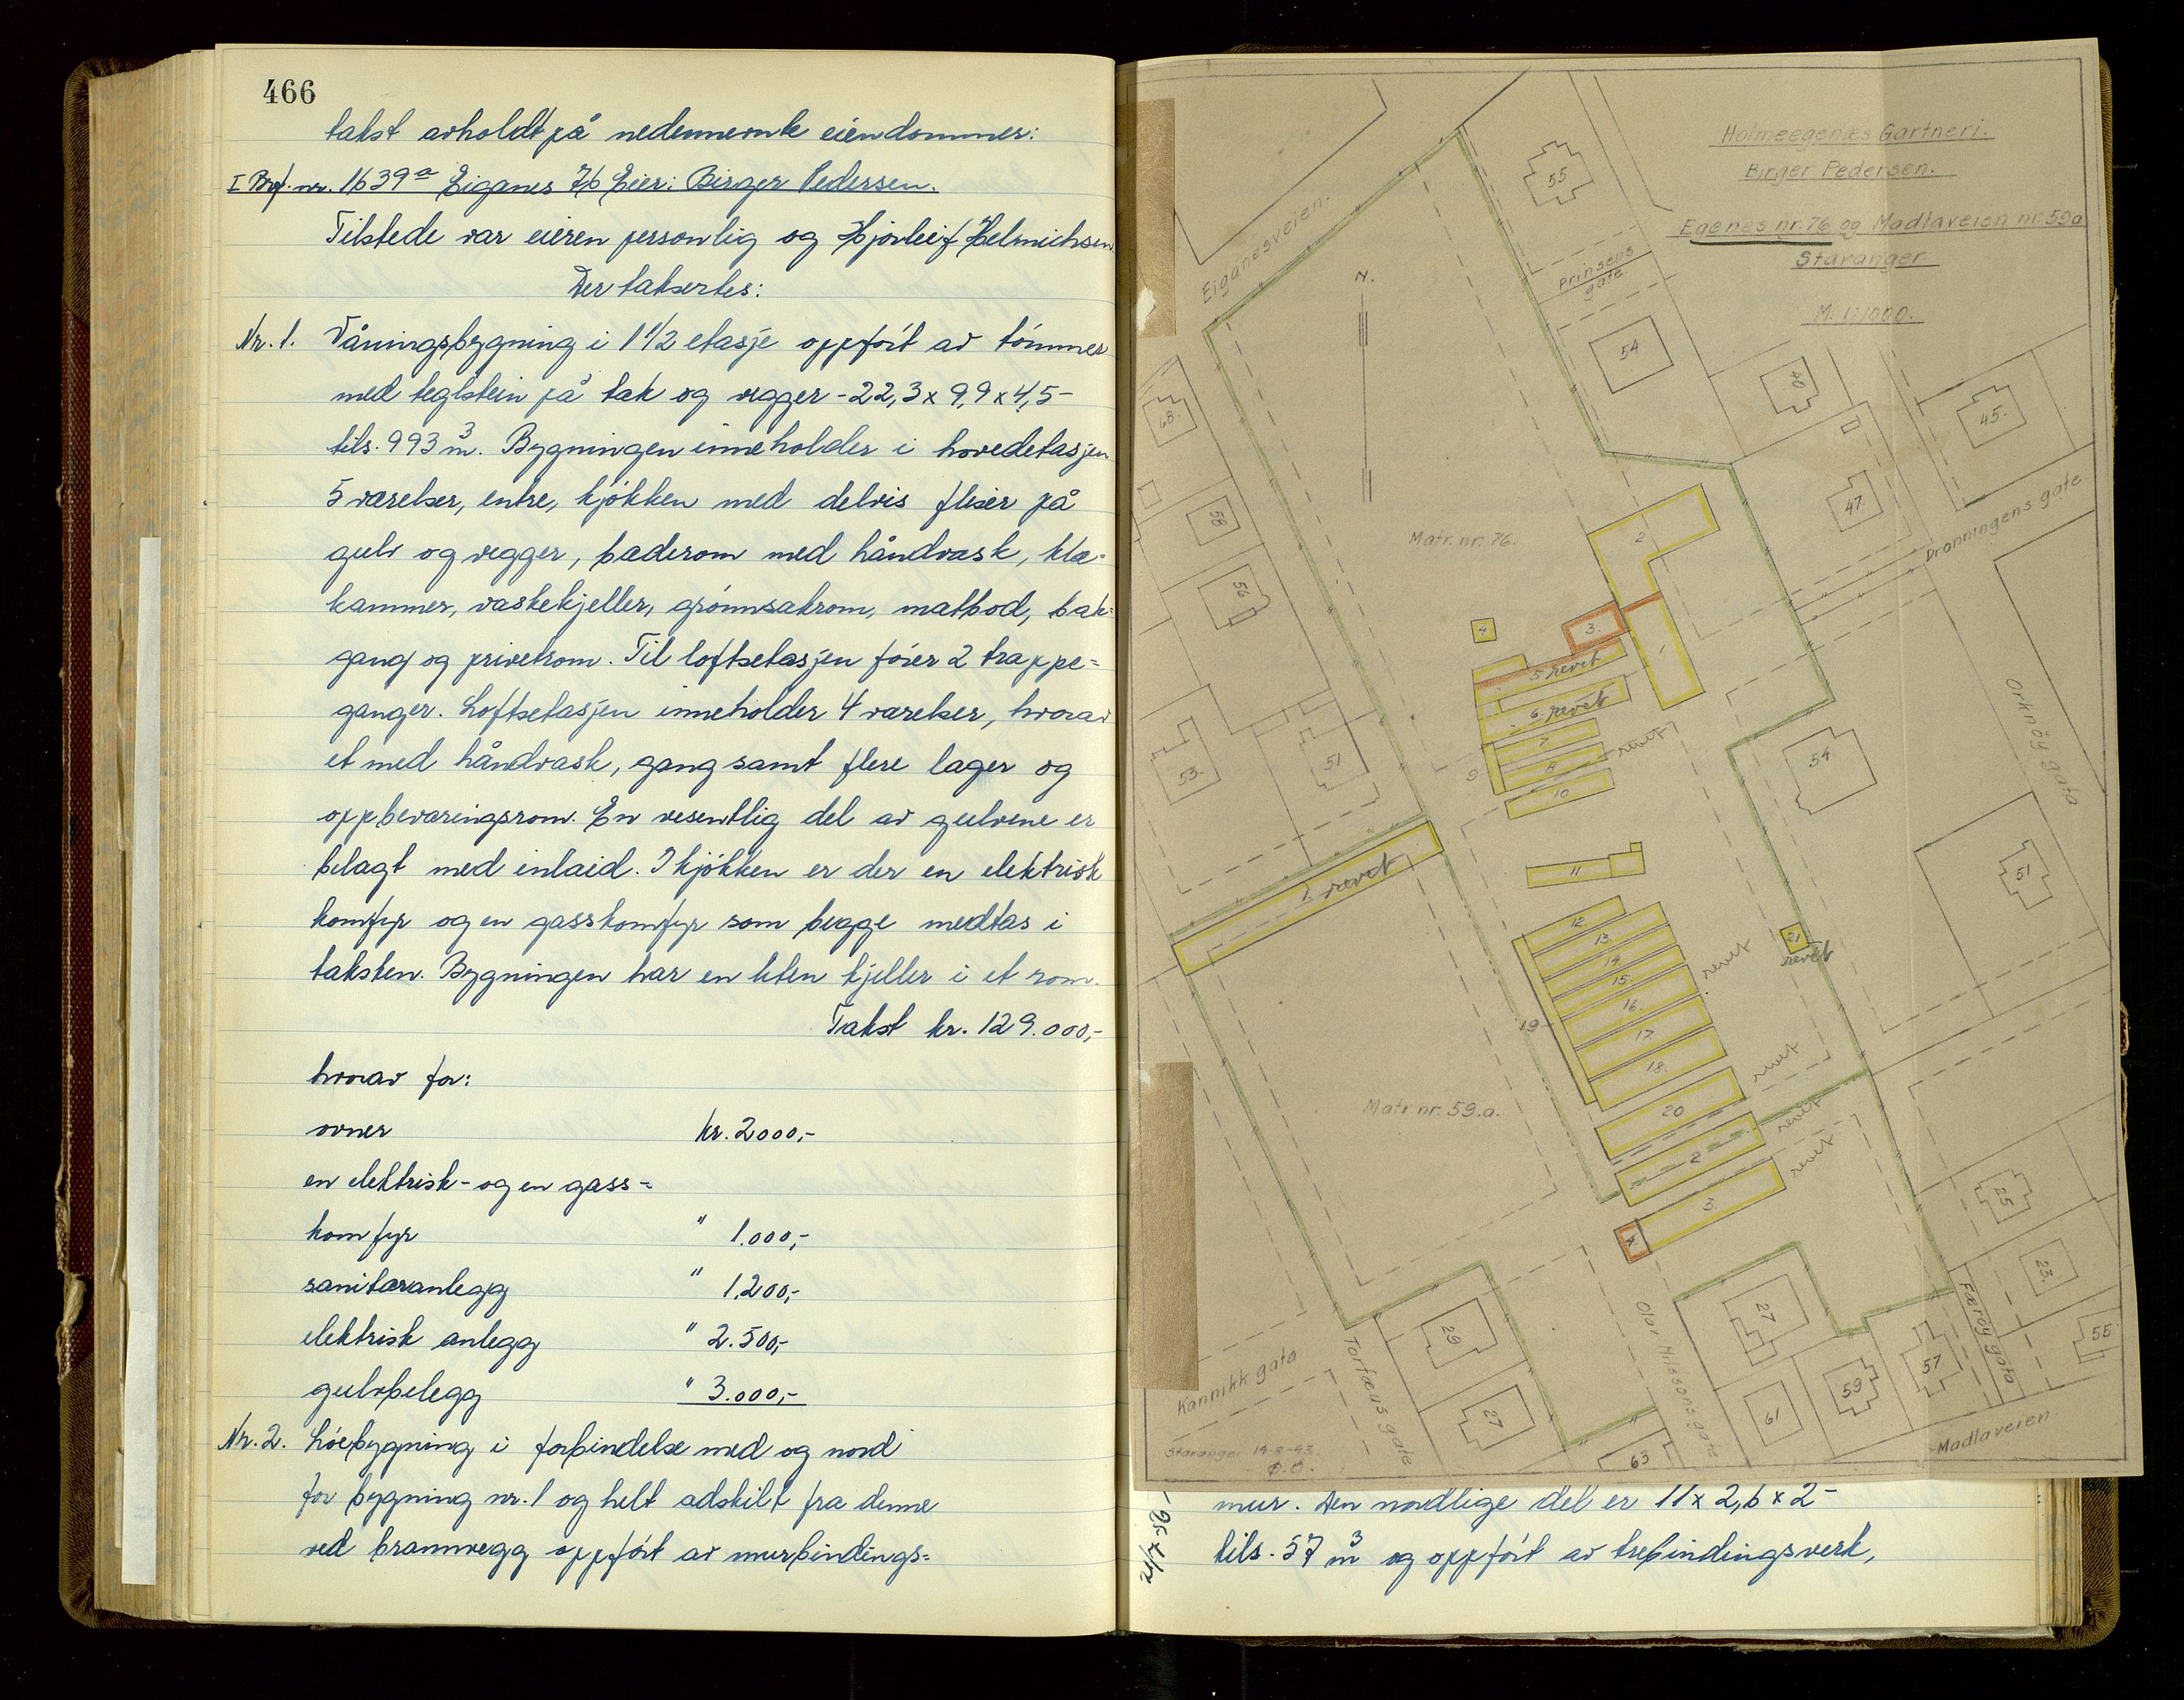 466
takst avholdt på nedennevnte eiendommer:
I Brf. nr. 1639a Eiganes 76 Eier: Birger Pedersen.
Tilstede var eieren personlig og Hjorleif Helmichsen
Der taksertes:
Nr. 1. Våningsbygning i 1 1/2 etasje oppfört av tömmer
med teglstein på tak og vegger - 22,3 x 9,9 x 4,5 -
tils. 993 m3. Bygningen inneholder i hovedetasjen
5 værelser, entre, kjökken med delvis fliser på
gulv og vegger, baderom med håndvask, klæ-
kammer, vaskekjeller, grönnsakrom, matbod, bak-
gang og privetrom. Til loftsetasjen förer 2 trappe=
ganger. Loftsetasjen inneholder 4 værelser, hvorav
et med håndvask, gang samt flere lager og
oppbevaringsrom. En vesentlig del av gulvene er
belagt med inlaid. I kjökken er der en elektrisk
komfyr og en gasskomfyr som begge medtas i
taksten. Bygningen har en liten kjeller i et rom.
Takst kr. 129.000,-
hvorav for:
ovner kr. 2000,-
en elektrisk- og en gass-=
komfyr " 1.000,-
sanitæranlegg " 1.200,-
elektrisk anlegg " 2.500,-
gulvbelegg " 3.000,-
Nr. 2. Löebygning i forbindelse med og nord
for bygning nr. 1 og helt adskilt fra denne
ved brannvegg oppfört av murbindings=
Holmeegenæs Gartneri.
Birger Pedersen.
Egenes nr. 76 og Madlaveien nr. 59a
Stavanger
M. 1:1000.
Eiganesveien.
N.
Prinsens
gate
55
54
40
45.
47.
Dronningens gate
68.
58
56
53.
51
Matr. nr. 76.
2
3.
1
4
5 revet
6. revet
7
8
9
revet
10
11
1. revet
12
13.
14.
15.
16.
17.
18.
19
20
revet
21
revet
revet
2
revet
3.
revet
4
54
Orknöy gata
51
Matr nr. 59.a.
25
23.
55
27
57
59
61
63
29
27
Færöy gata
Olav Nilssons gate
Torfæus gate
Kannikk gata
Madlaveien.
Stavanger 14-8-43.
Ø.Ö.
mur. Den nordlige del er 11 x 2,6 x 2 -
tils. 57 m3 og oppfört av trebindingsverk,